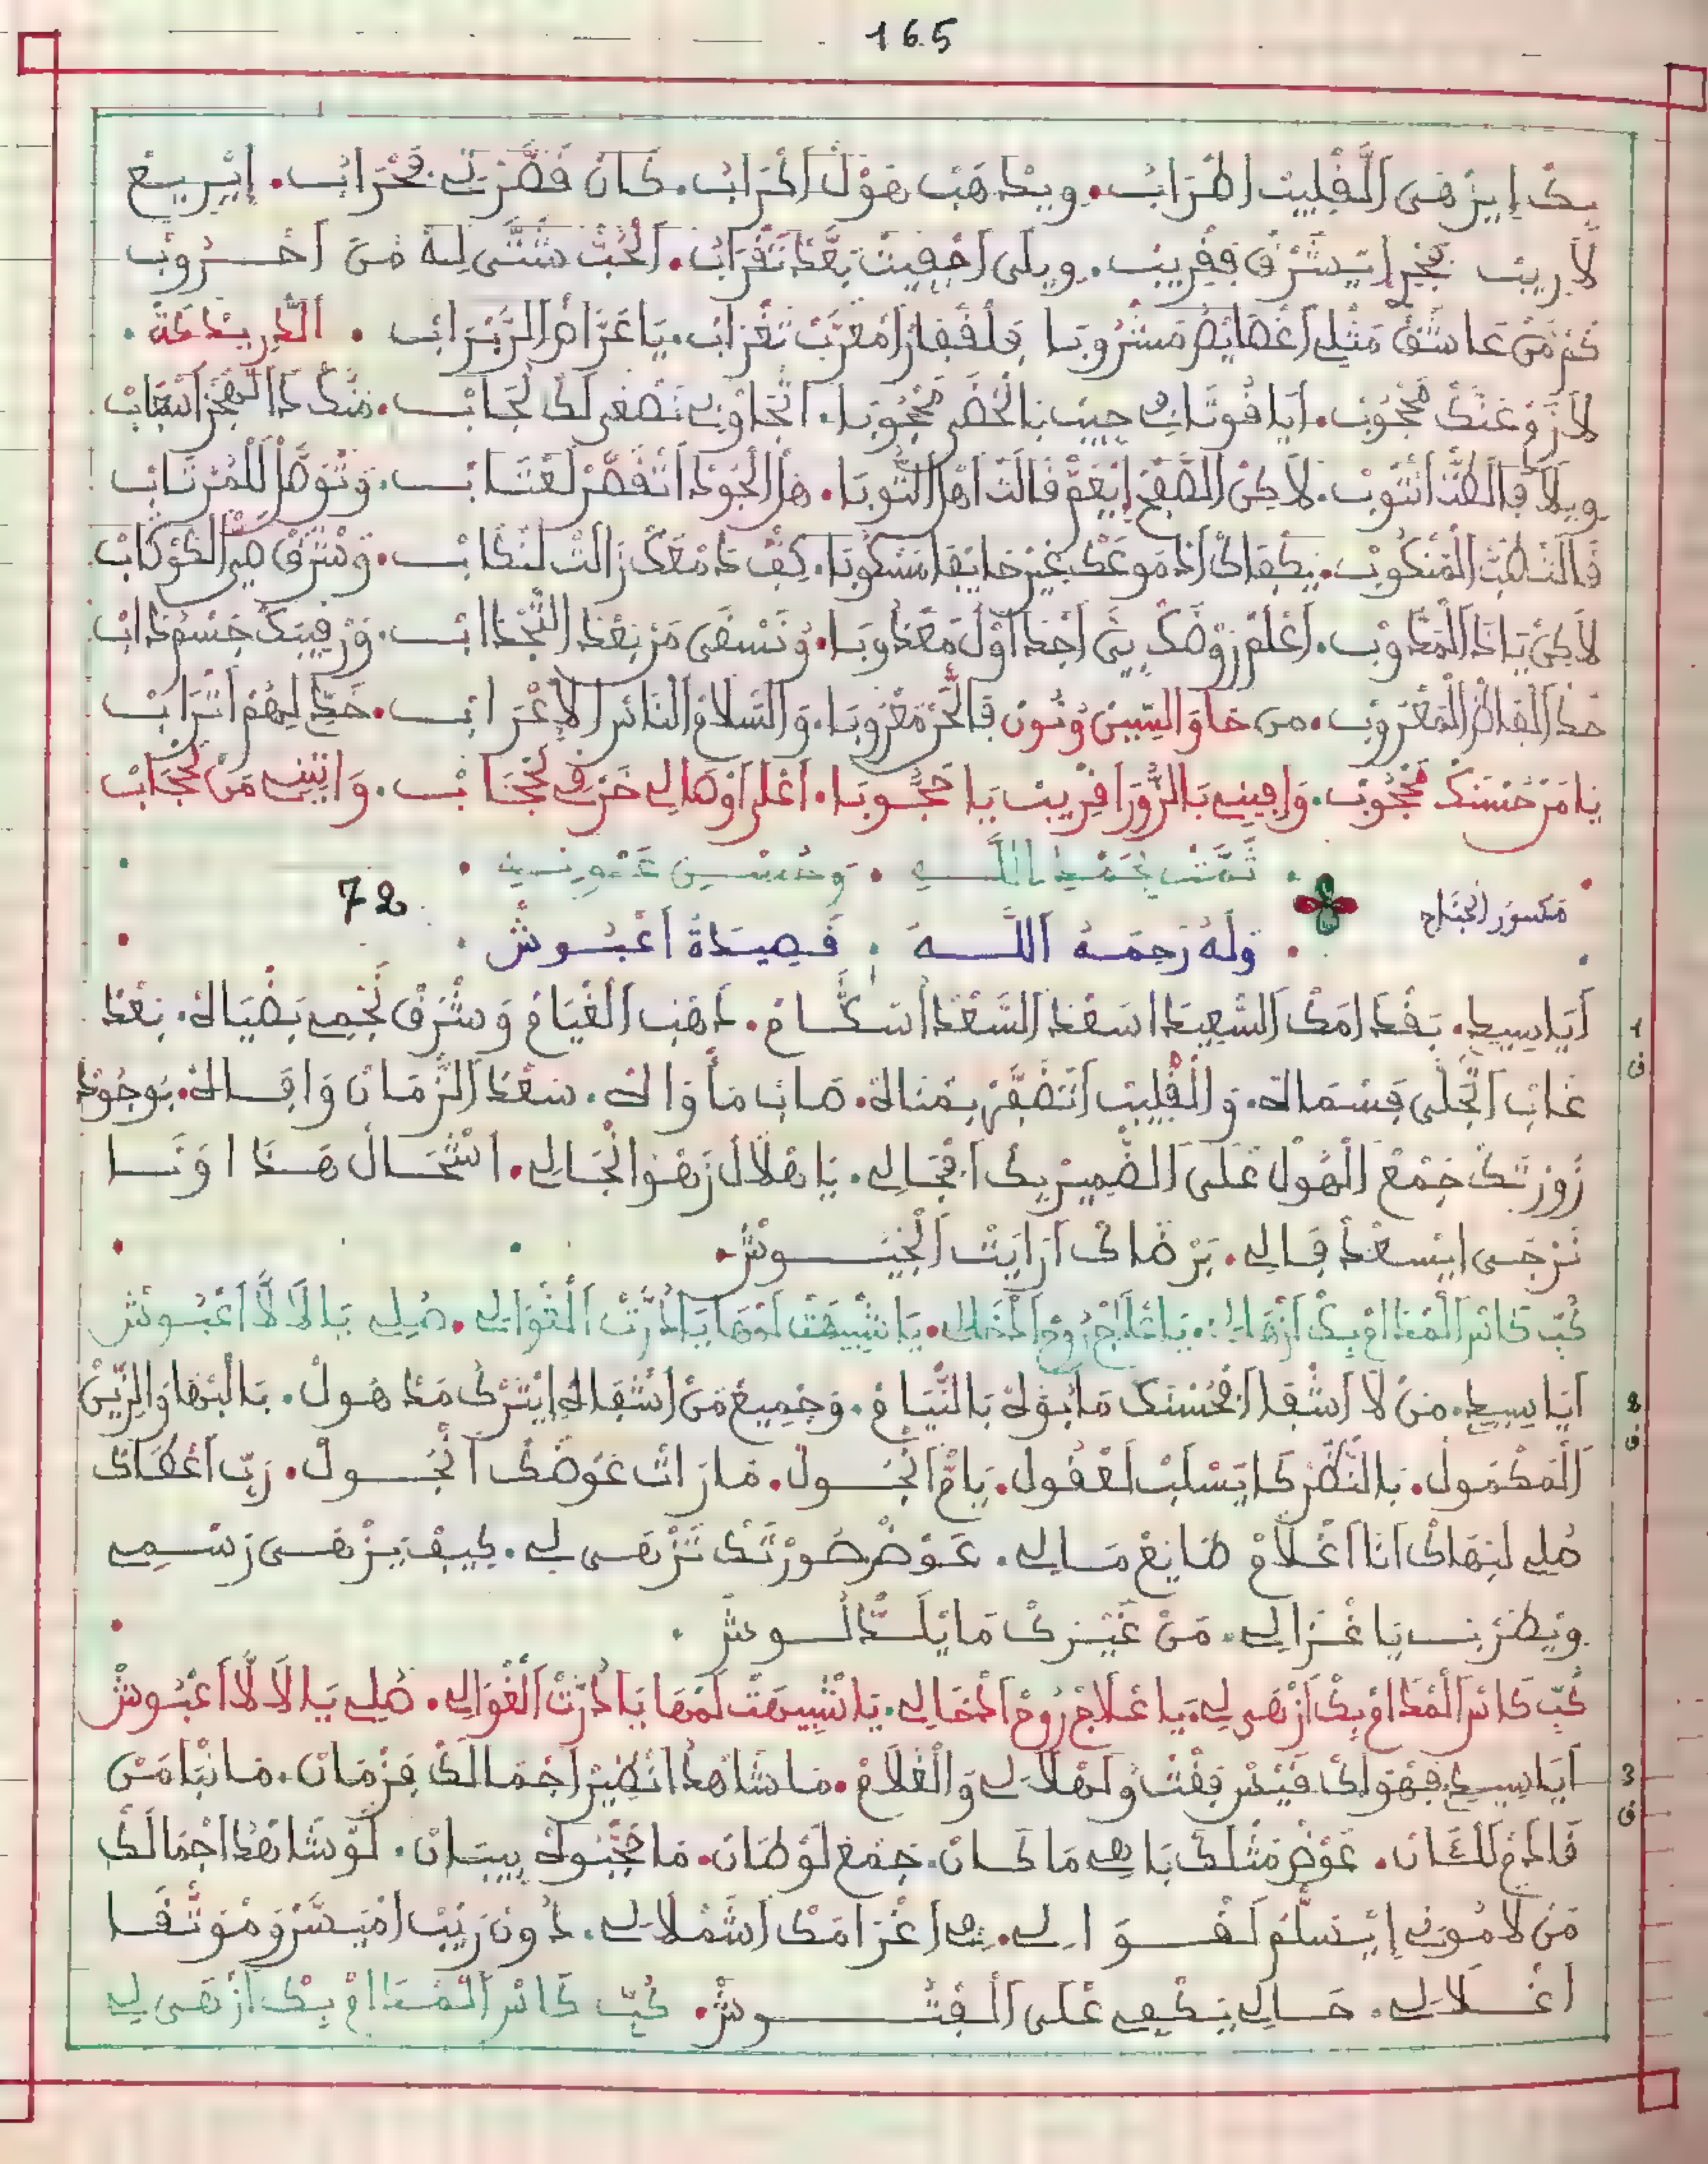 165
بك إيزهى القليب اطراب. ويذهب هول اكراب. كان قصرتي فحراب. إيريع
لا ريب فجر ايشرق فقريب. ويلى اخفيت بعد تقراب. الحب شتى ليه من احروب
كم من عاشق مثلي اعطايه مشروبا فلقفار امغرب تغراب. يا عراض الزبراب. الدريدكة.
لا زوعنك محجوب. أيا قوتاني حبيب بالخضر محجوبا. اتجاوني تصغى لك لجاب. منك ذا الهجر اسباب
ويلا قالظن اتوب. لا كن الصفح إيعم قالت أهل التوبا. هل الجود اتقصر لعتاب. وتوصل للمرتاب
قالتلهب المنكوب. يكفاك اذموعك غير خايفا مسكوبا. كف دمعك زالت لنكاب. وشرق ضي الكوكاب
لاكن ياذا المذوب. اعلم روضك بين اجداول معذوبا. وتسقى من بعد التجذاب. ورقيبك جسمه ذاب
خذ ألفاظ المعروب. من حاو السين ونون قالحر معروبا. والسلام الناس الاعراب. خد ليهم اتراب
يا من حسنك محجوب. وافيني بالزورا قريب يا حجوبا. اعلى اوصالي حرق لجناب. واتيني من لحجاب
تمت بحمد الله. وحسن عونه
مكسور الجناح
72
وله رحمه الله. قصيدة اعبوش
1
أيا سيد. بقد امك السعيد اسعد السعد اسكام. ذهب الغيام وشرق نجمي بضياه. بعد
ف
غاب اتجلى فسماه. والقليب اتضفر بمناه. صاب ماواه. سعد الزمان وافاه. بوجود
زورتك جمع الهول على الضمير بك افجالي. يا هلال زهو انجالي. اشحال هذا اونا
نرجى ايسعد فالي. برضاك ارايت الجيوش.
كب كاس المدام بك ازهالي. يا علاج روح ادخالي. يا شبيهت لمها يا درت الغوالي. صلي يا لالا اعبوش
2
أيا سيد. من لا اشقا الحسنك ما بوه بالنيام. وجميع من اشقاه إيترك مذهول. بالبها والزين
ف
المكمول. بالنظر كايسلب لعقول. يام انجول. ما رات عوضك انجول. رب أعطاك
صلي لبهاك انا اغلام طايع مالي. عوض صورتك تزهى لي. كيف يزهى رسمي
ويطرب يا غزالي. من غيرك ما يلذ لوش.
كب كاس المدام بك ازهى لي. يا علاج روح ادخالي. يا شبيهت لمها يا درت الغوالي. صلي يا لالا اعبوش
3
أيا سيد. فهواك قيس فقت والهلالي والغلام. ما شاهد انضير اجمالك فزمان. ما نبا من
ف
قادم للكان. عوض مثلك باهي ما كان. جمع لوطان. ما جبوه بيبان. لو شاهد اجمالك
من لاموني إيسلم لقوالي. في اغرامك اشملالي. دون ريب اميسر وموثقا
أغلالي. حالي يكفي على الفتوش. كب كاس المدام بك ازهى لي